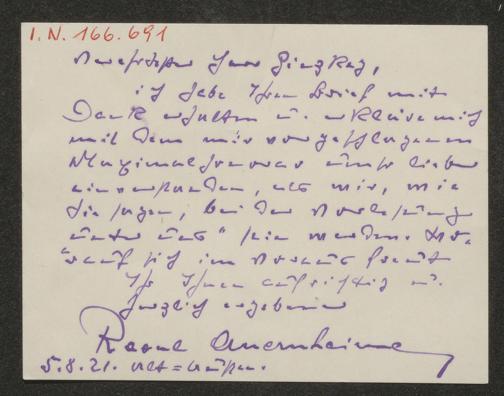 I.N. 166.691
Verehrter Herr Ginzkey,
ich habe Ihren Brief mit
Dank erhalten u. erkläre mich
mit dem mir vorgeschlagenen
Maximalhonorar umso lieber
einverstanden, als wir, wie
Sie sagen, bei der Vorlesung
"unter uns" sein werden. Wo-
rauf sich im Voraus freut
Ihr Ihnen aufrichtig u.
herzlich ergebener
Raoul Auernheimer
5.8.21. Alt=Aussee.